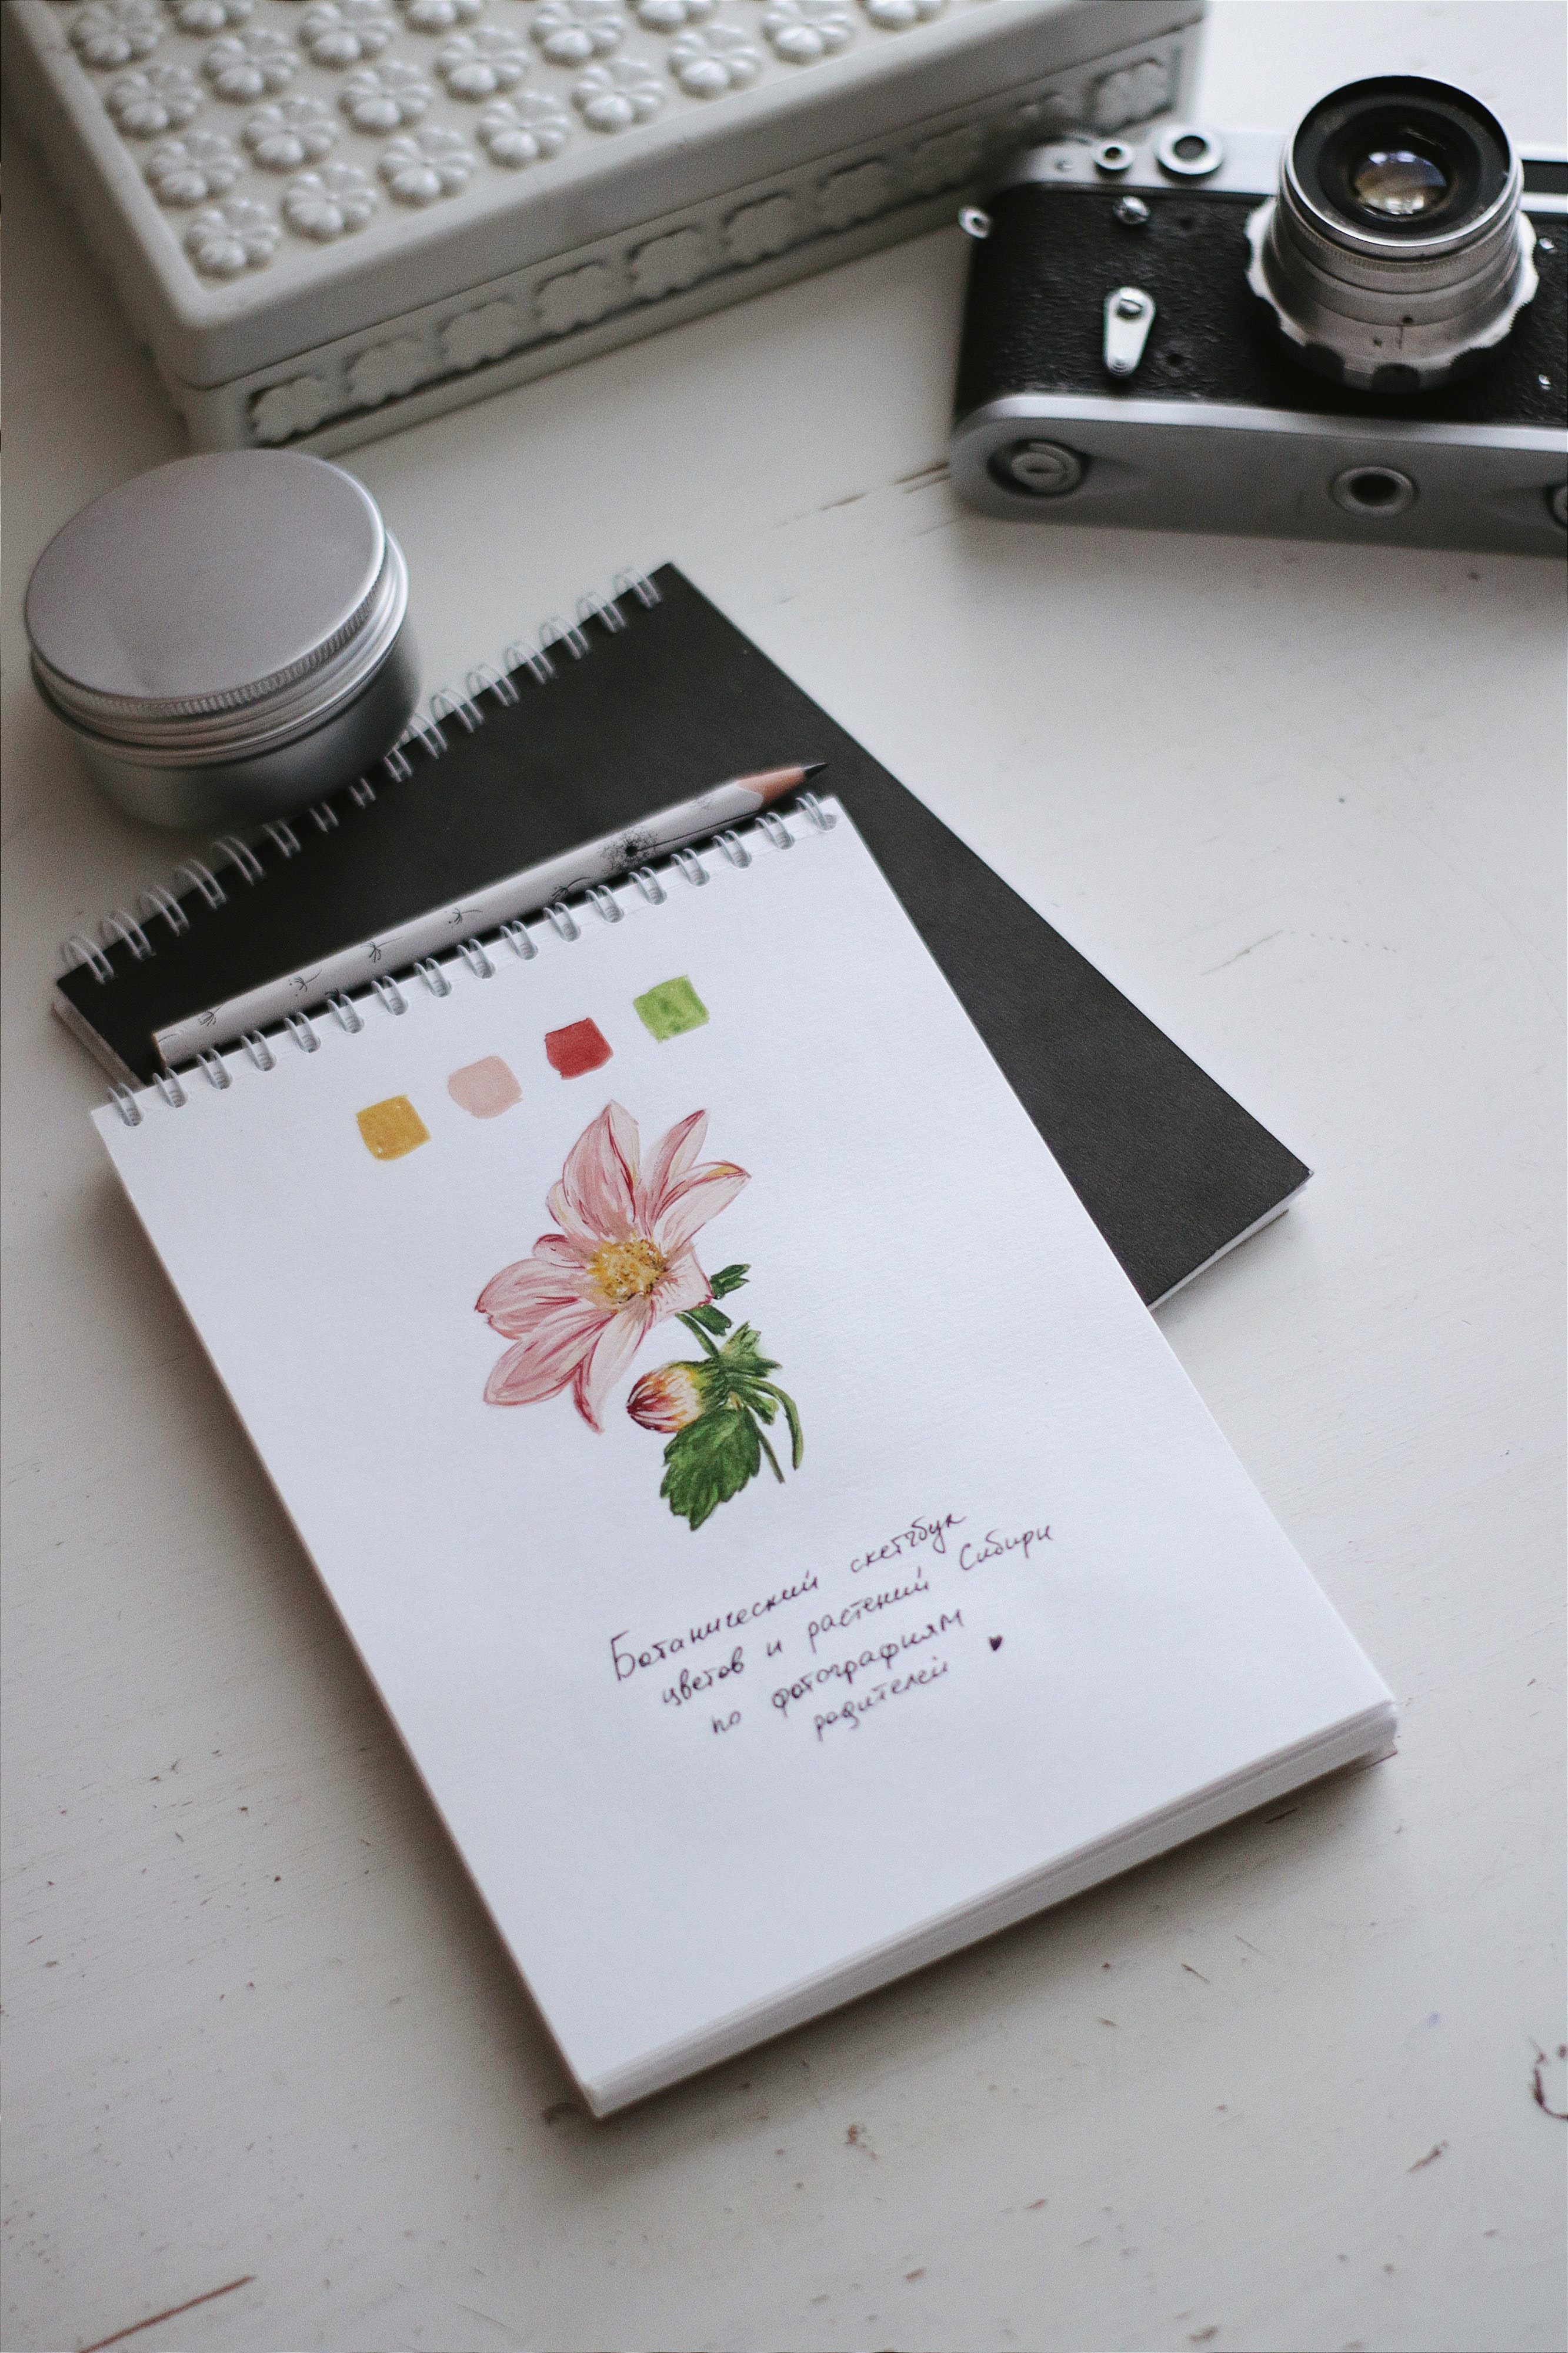 Ботанический скетчбук
цветов и растений Сибири
по фотографиям
родителей